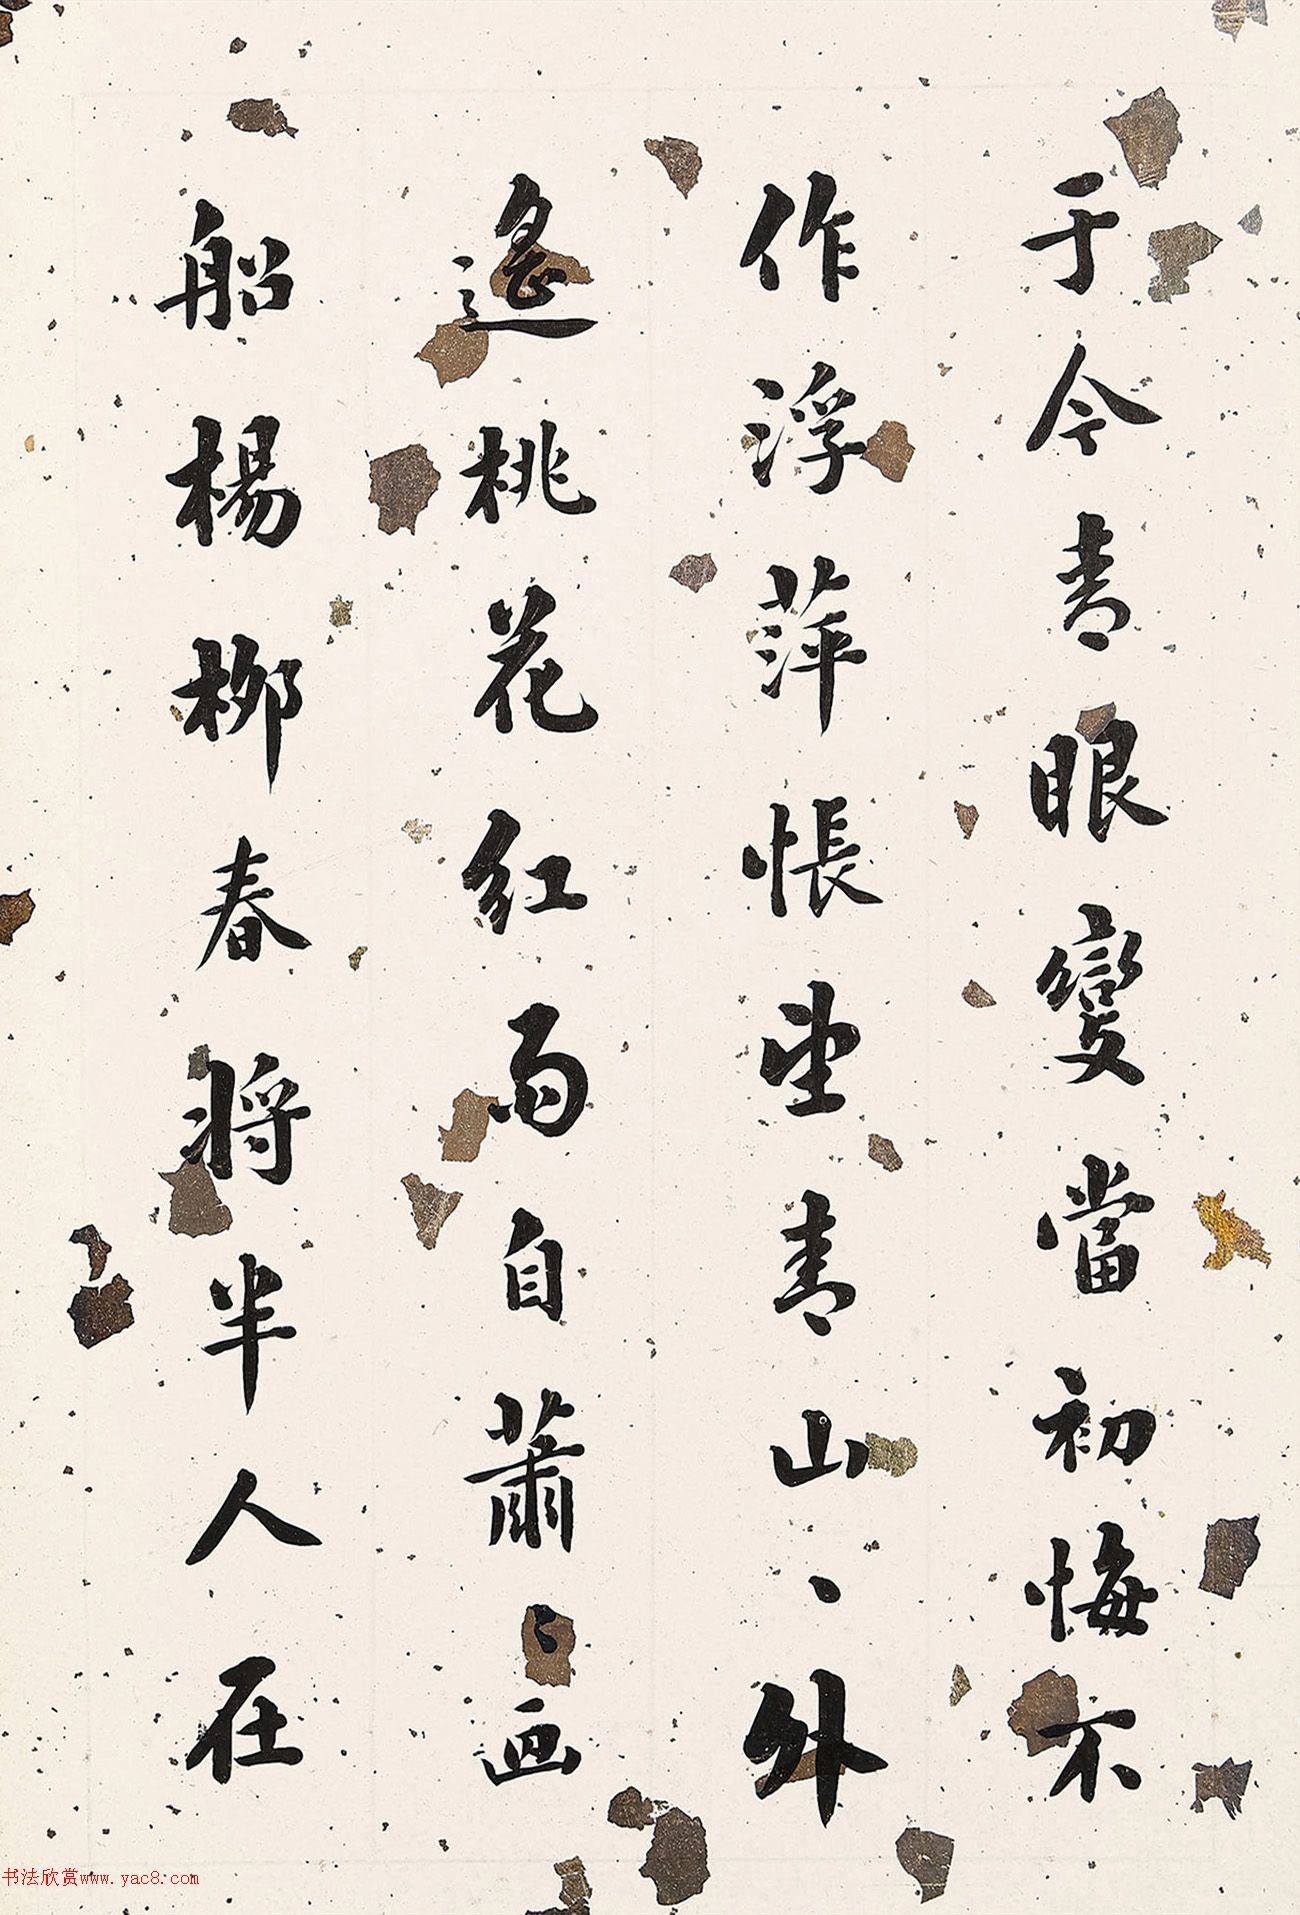 于今青眼變當初悔不
作浮萍悵望青山〻外
遙桃花紅雨自蕭〻画
船楊柳春將半人在
书法欣赏www.yac8.com